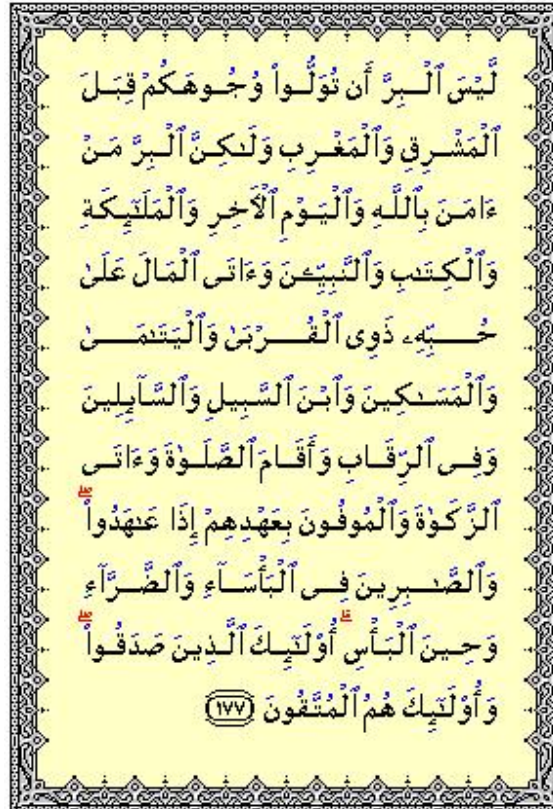 لَّيْسَ ٱلْبِرَّ أَن تُوَلُّوا۟ وُجُوهَكُمْ قِبَلَ
ٱلْمَشْرِقِ وَٱلْمَغْرِبِ وَلَـٰكِنَّ ٱلْبِرَّ مَنْ
ءَامَنَ بِٱللَّهِ وَٱلْيَوْمِ ٱلْأَخِرِ وَٱلْمَلَـٰٓئِكَةِ
وَٱلْكِتَـٰبِ وَٱلنَّبِيِّـۧنَ وَءَاتَى ٱلْمَالَ عَلَىٰ
حُبِّهِۦ ذَوِى ٱلْقُرْبَىٰ وَٱلْيَتَـٰمَىٰ
وَٱلْمَسَـٰكِينَ وَٱبْنَ ٱلسَّبِيلِ وَٱلسَّآئِلِينَ
وَفِى ٱلرِّقَابِ وَأَقَامَ ٱلصَّلَوٰةَ وَءَاتَى
ٱلزَّكَوٰةَ وَٱلْمُوفُونَ بِعَهْدِهِمْ إِذَا عَـٰهَدُوا۟ ۖ
وَٱلصَّـٰبِرِينَ فِى ٱلْبَأْسَآءِ وَٱلضَّرَّآءِ
وَحِينَ ٱلْبَأْسِ ۗ أُو۟لَـٰٓئِكَ ٱلَّذِينَ صَدَقُوا۟ ۖ
وَأُو۟لَـٰٓئِكَ هُمُ ٱلْمُتَّقُونَ ١٧٧